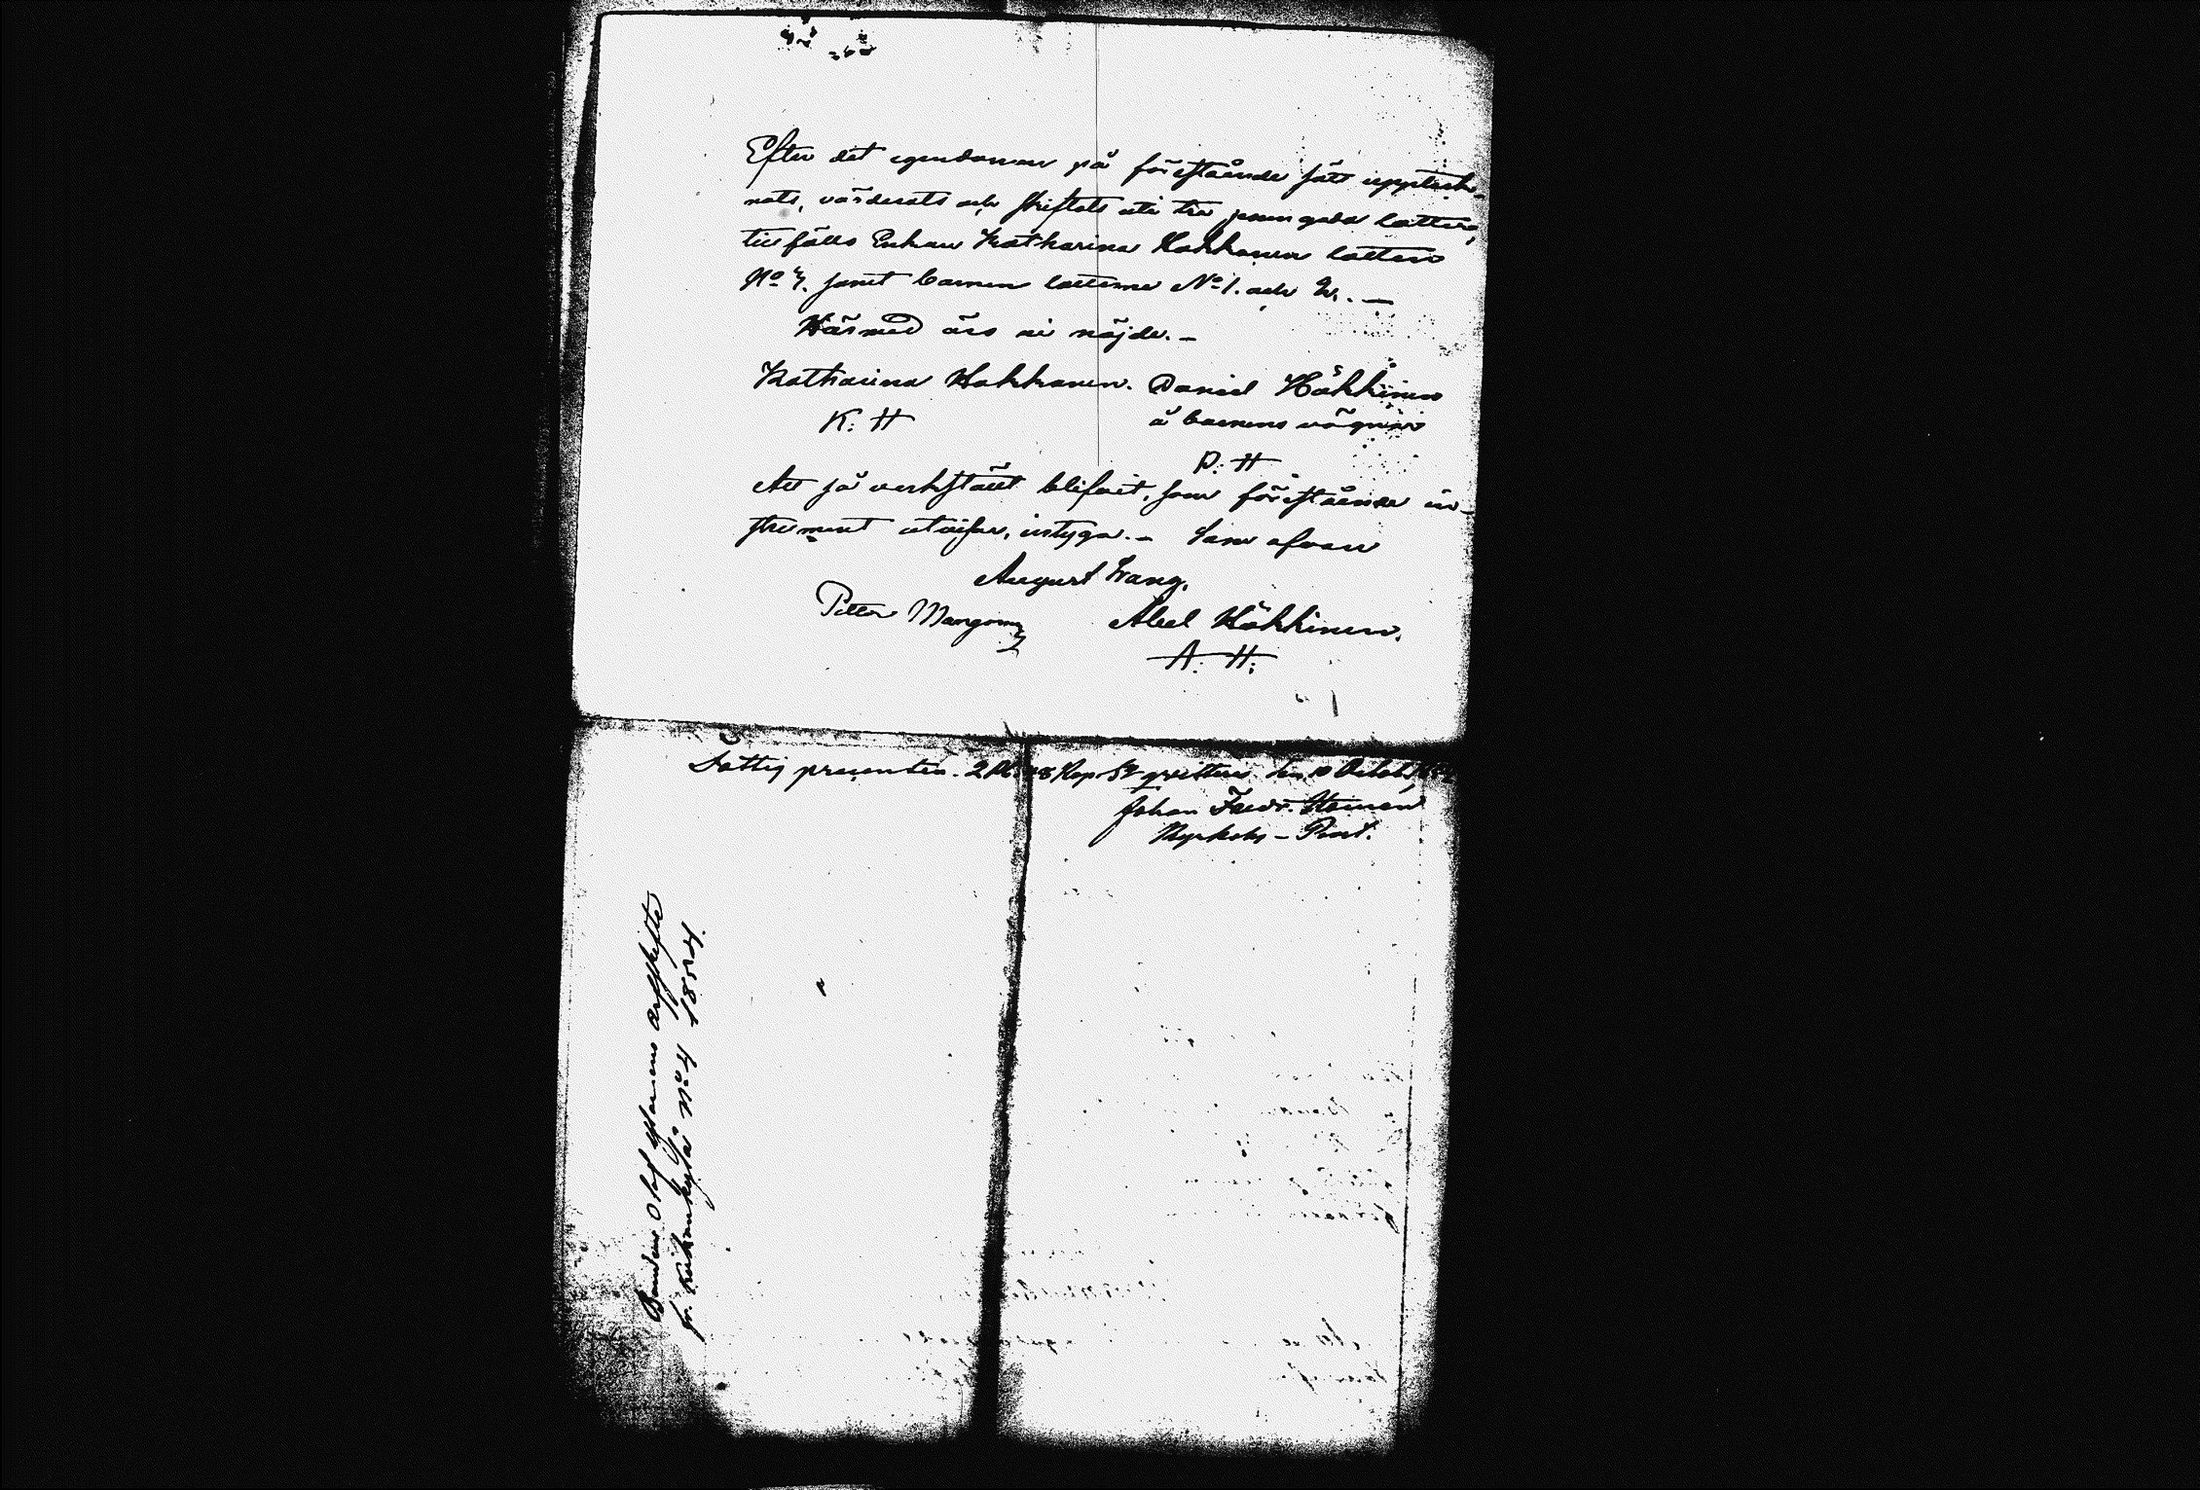 Efter det egendomen på föreståendе sätt uppteck-
nats, värderats och skiftats uti tre jemngoda lotter,
tillföllo Enkan Katharina Hakkanen lotten
No 3. samt barnen lotterne No 1. och 2. —
Härmed äro vi nöjde. —
Katharina Hakkanen. Daniel Häkkinen
K. H å barnens vägnar
D. H
Att så verkstäldt blifvit, som föreståendе in-
strument utvisar, intyga. — Som ofvan
August Wang.
Petter Mangom
Abel Häkkinen.
A. H.
Fattig procenten. 2 Rb 28 Kop Sr qvitteras den 10 October
Johan Fredr. Homén
Kyrkoh: - Pred.
Bonden Olof arfskifte
fr. Kukonkylä No 4 1854.